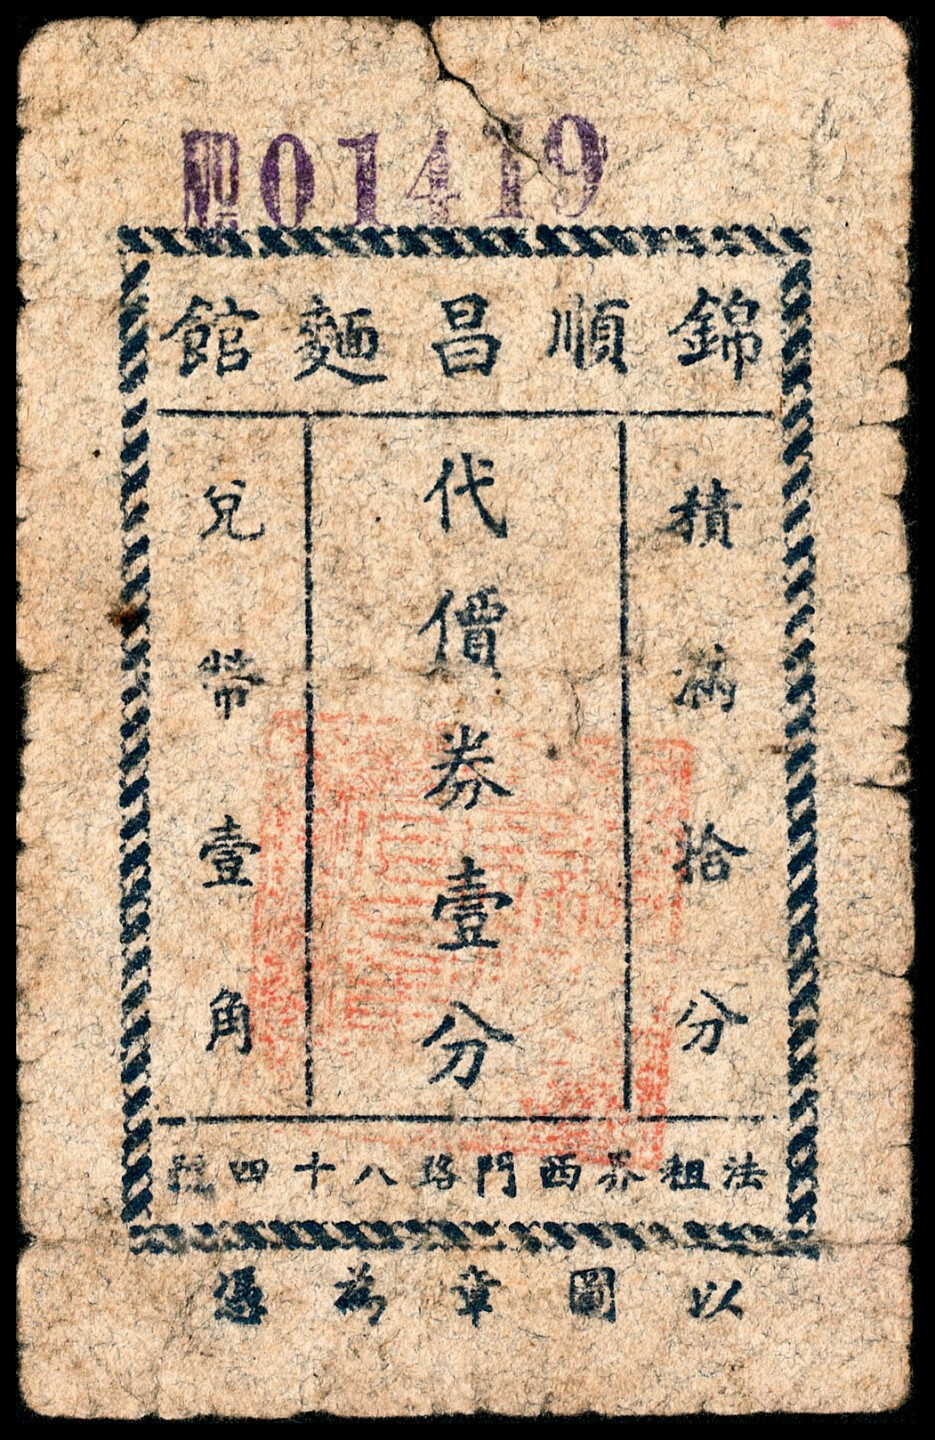 No 01419
錦順昌麵館
積滿拾分
代價券壹分
兌幣壹角
法租界西門路八十四號
以圖章為憑